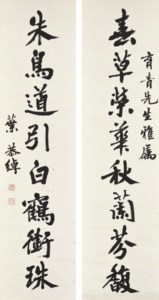 春草榮華秋蘭芬馥
育青先生雅屬
朱鳥道引白鶴銜珠
葉恭綽